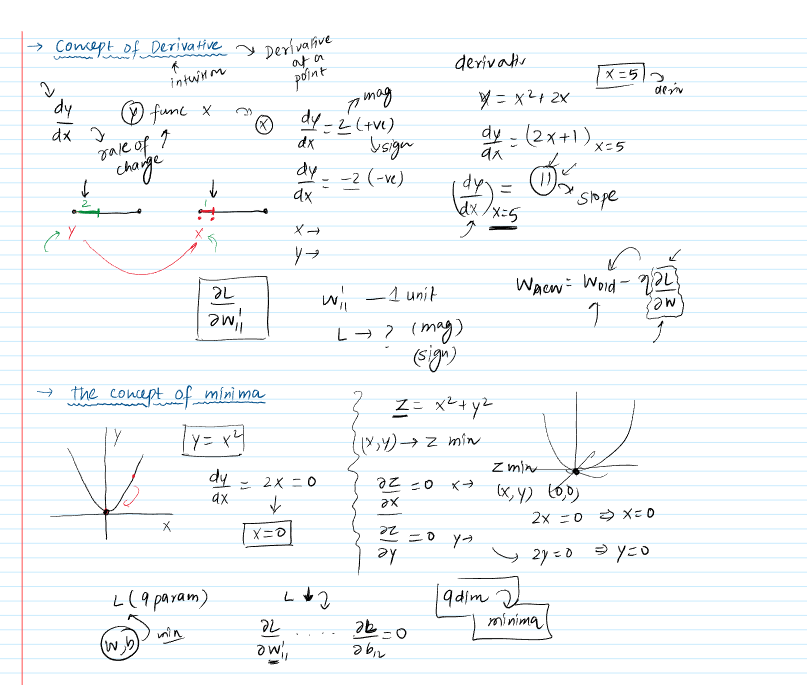 → Concept of Derivative → Derivative at a point
↑ intuition
dy/dx → rate of change
y func x → x
dy/dx = 2 (+ve) → mag ↘ sign
dy/dx = -2 (-ve)
2
1
Y
X
X →
Y →
derivativ
x=5 → deriv
y = x² + 2x
dy/dx = (2x+1) x=5
(dy/dx) x=5 = 11 → slope
∂L/∂W¹₁₁
W¹₁₁ — 1 unit
L → ? (mag)
(sign)
Wnew = Wold - η ∂L/∂W
→ The concept of minima
Y
X
y = x²
dy/dx = 2x = 0
↓
x=0
Z = x² + y²
(x,y) → Z min
∂Z/∂x = 0 x→
∂Z/∂y = 0 y→
Z min
(x,y) (0,0)
2x = 0 ⇒ x=0
→ 2y=0 ⇒ y=0
L (9 param)
w,b min
L ↓
∂L/∂W¹₁₁ ..... ∂L/∂b₁₂ = 0
9dim
minima